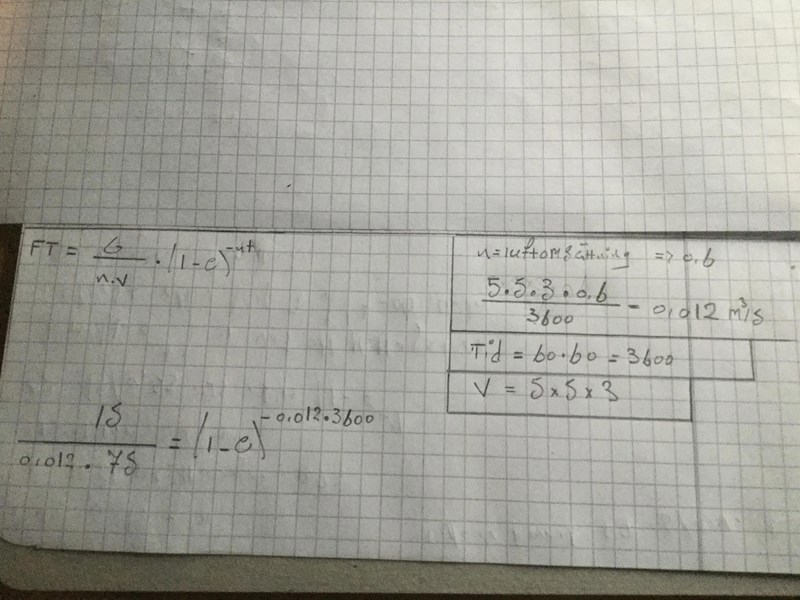 FT = G / n.v · (1-e)^-nt
n = luftomsättning => 0.6
5.5.3.0.6 / 3600 = 0,012 m³/s
Tid = 60.60 = 3600
V = 5x5x3
15 / 0.012 . 75 = (1-e)^-0.012.3600